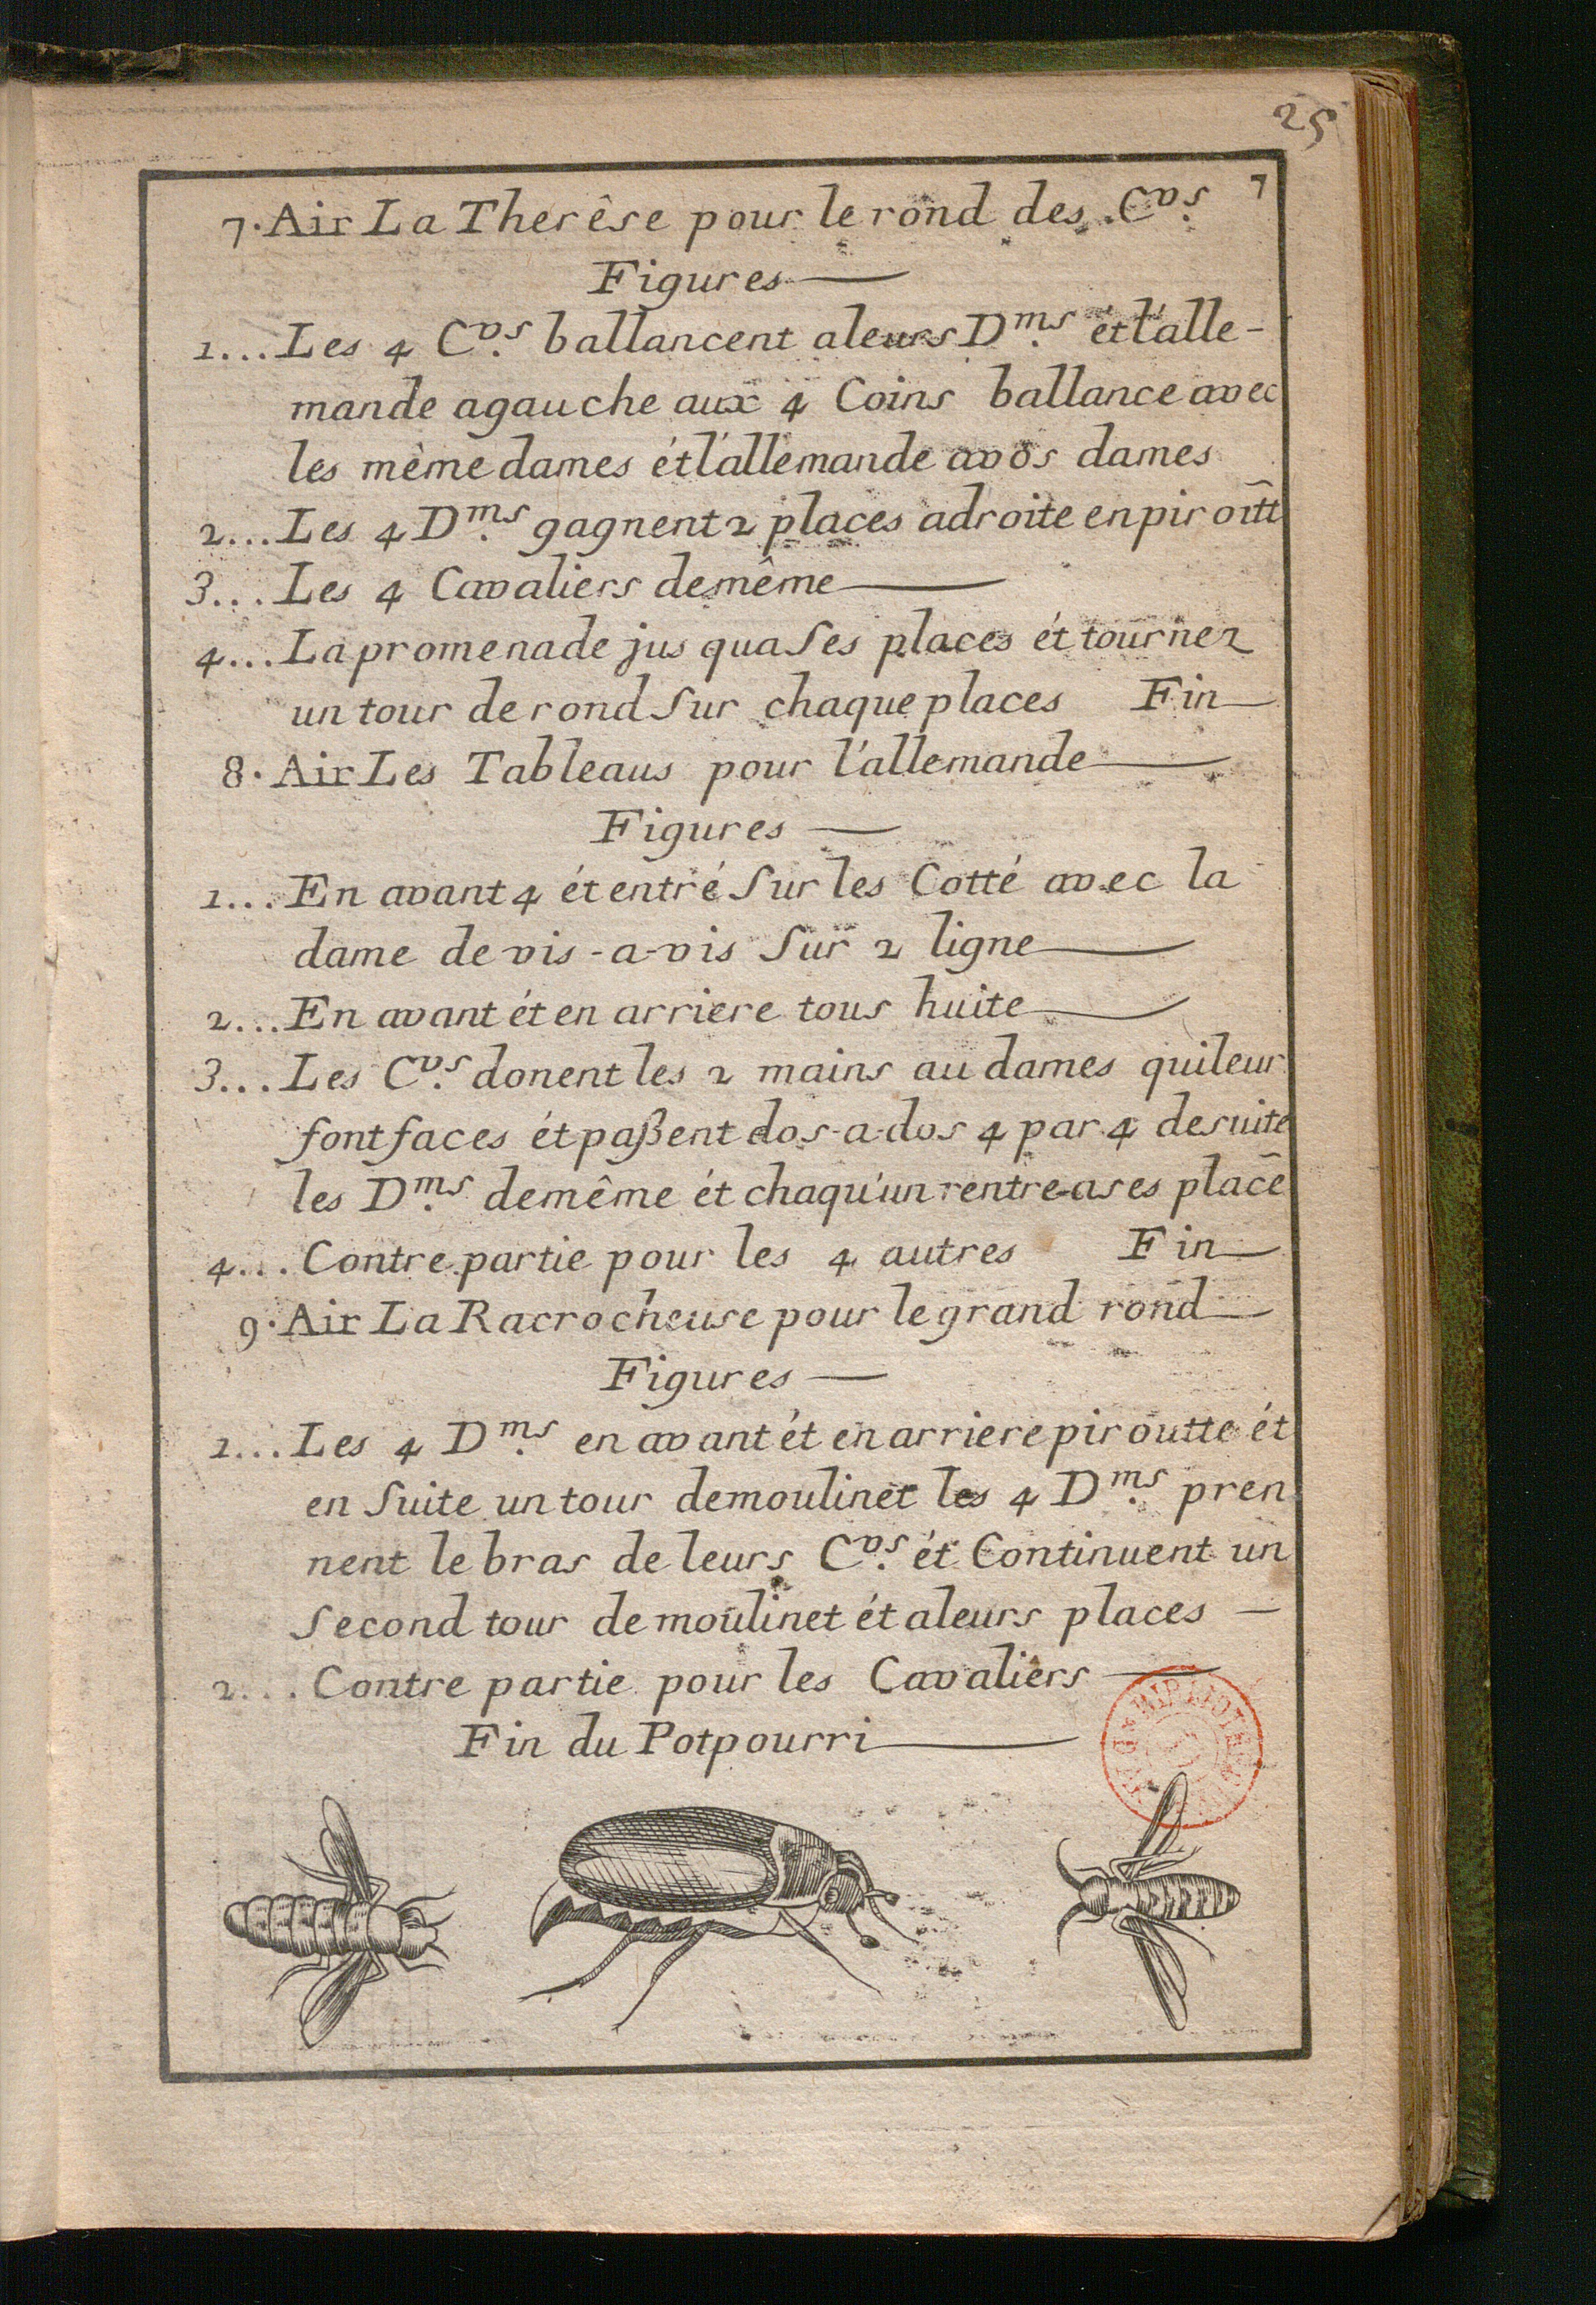 25
7
7. Air La Therêse pour le rond des Cvs.
Figures —
1... Les 4 Cvs. ballancent a leurs Dms. ét l'alle-
mande a gauche aux 4 Coins ballance avec
les mème dames ét l'allemande a vos dames
2... Les 4 Dms. gagnent 2 places a droite en piroûtt
3... Les 4 Cavaliers de même —
4... La promenade jus qua Ses places ét tournez
un tour de rond Sur chaque places Fin —
8. Air Les Tableaus pour l'allemande —
Figures —
1... En avant 4 ét entré Sur les Cotté avec la
dame de vis-a-vis Sur 2 ligne —
2... En avant ét en arriere tous huite —
3... Les Cvs. donent les 2 mains au dames qui leur
font faces ét paßent dos-a-dos 4 par 4 de suite
les Dms. de même ét chaqu'un rentre a ses placẽ
4... Contre partie pour les 4 autres Fin —
9. Air La Racrocheuse pour le grand rond —
Figures —
1... Les 4 Dms. en avant ét en arriere piroutte ét
en Suite un tour de moulinet les 4 Dms. pren
nent le bras de leurs Cvs. ét Continuent un
Second tour de moulinet ét a leurs places —
2... Contre partie pour les Cavaliers —
Fin du Potpourri —